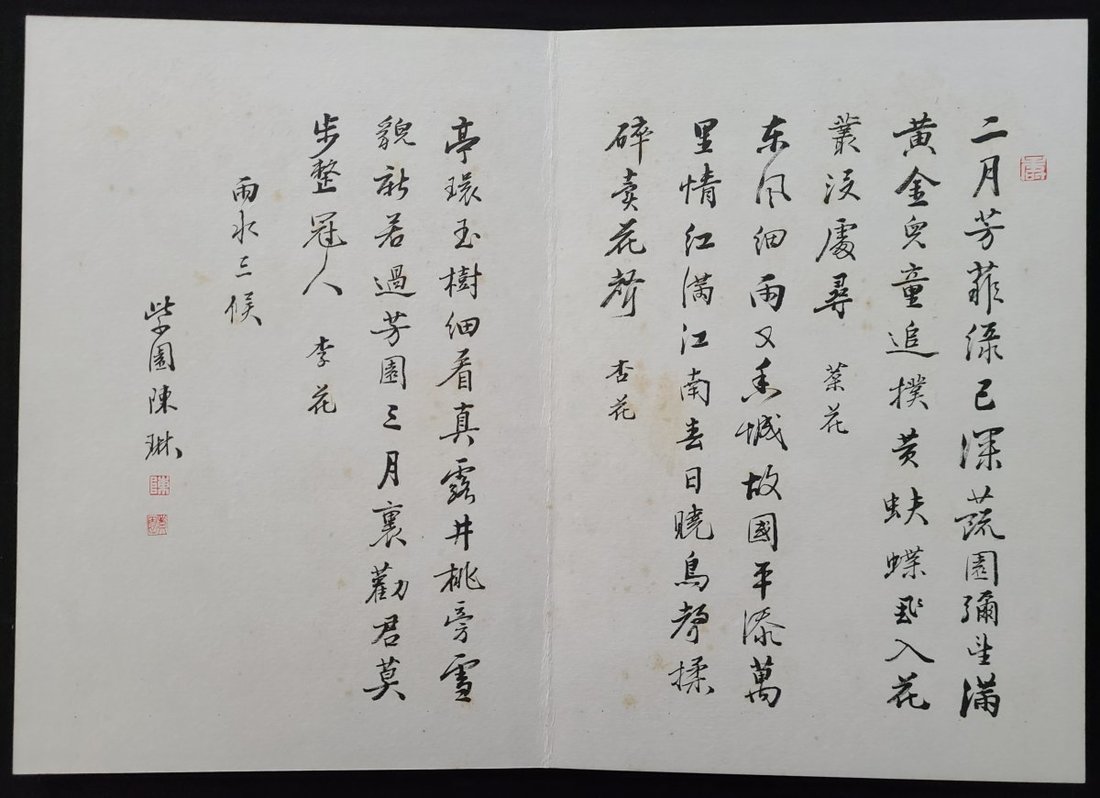 二月芳菲綠已深蔬園彌望滿
黃金兒童追撲黃蛺蝶飛入花
叢沒處尋 菜花
东風細雨又城故國平添萬
里情紅滿江南春日曉鳥聲揉
碎賣花聲 杏花
亭環玉樹細看真露井桃旁雪
貌新若過芳園三月裏勸君莫
步整冠人 李花
雨水三候
紫園陳琳